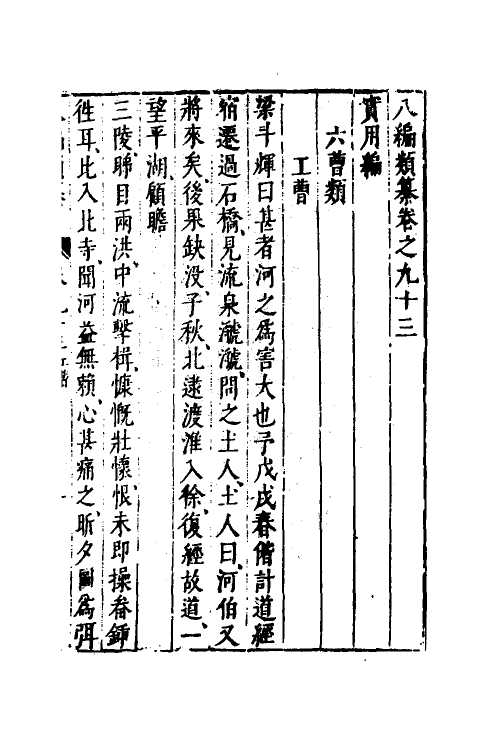 八編類纂卷之九十三
實用編
六曹類
工曹
梁斗輝曰甚者河之爲害大也予戊戌春偕計道經
宿遷過石橋見流泉㶁㶁問之土人土人曰河伯又
將來矣後果缺没予秋北遠渡淮入徐復經故道一
望平湖顧瞻
三陵睇目兩洪中流擊楫慷慨壯懷恨未即操畚鍤
徃耳比入北寺聞河益無頼心甚痛之昕夕圖爲弭